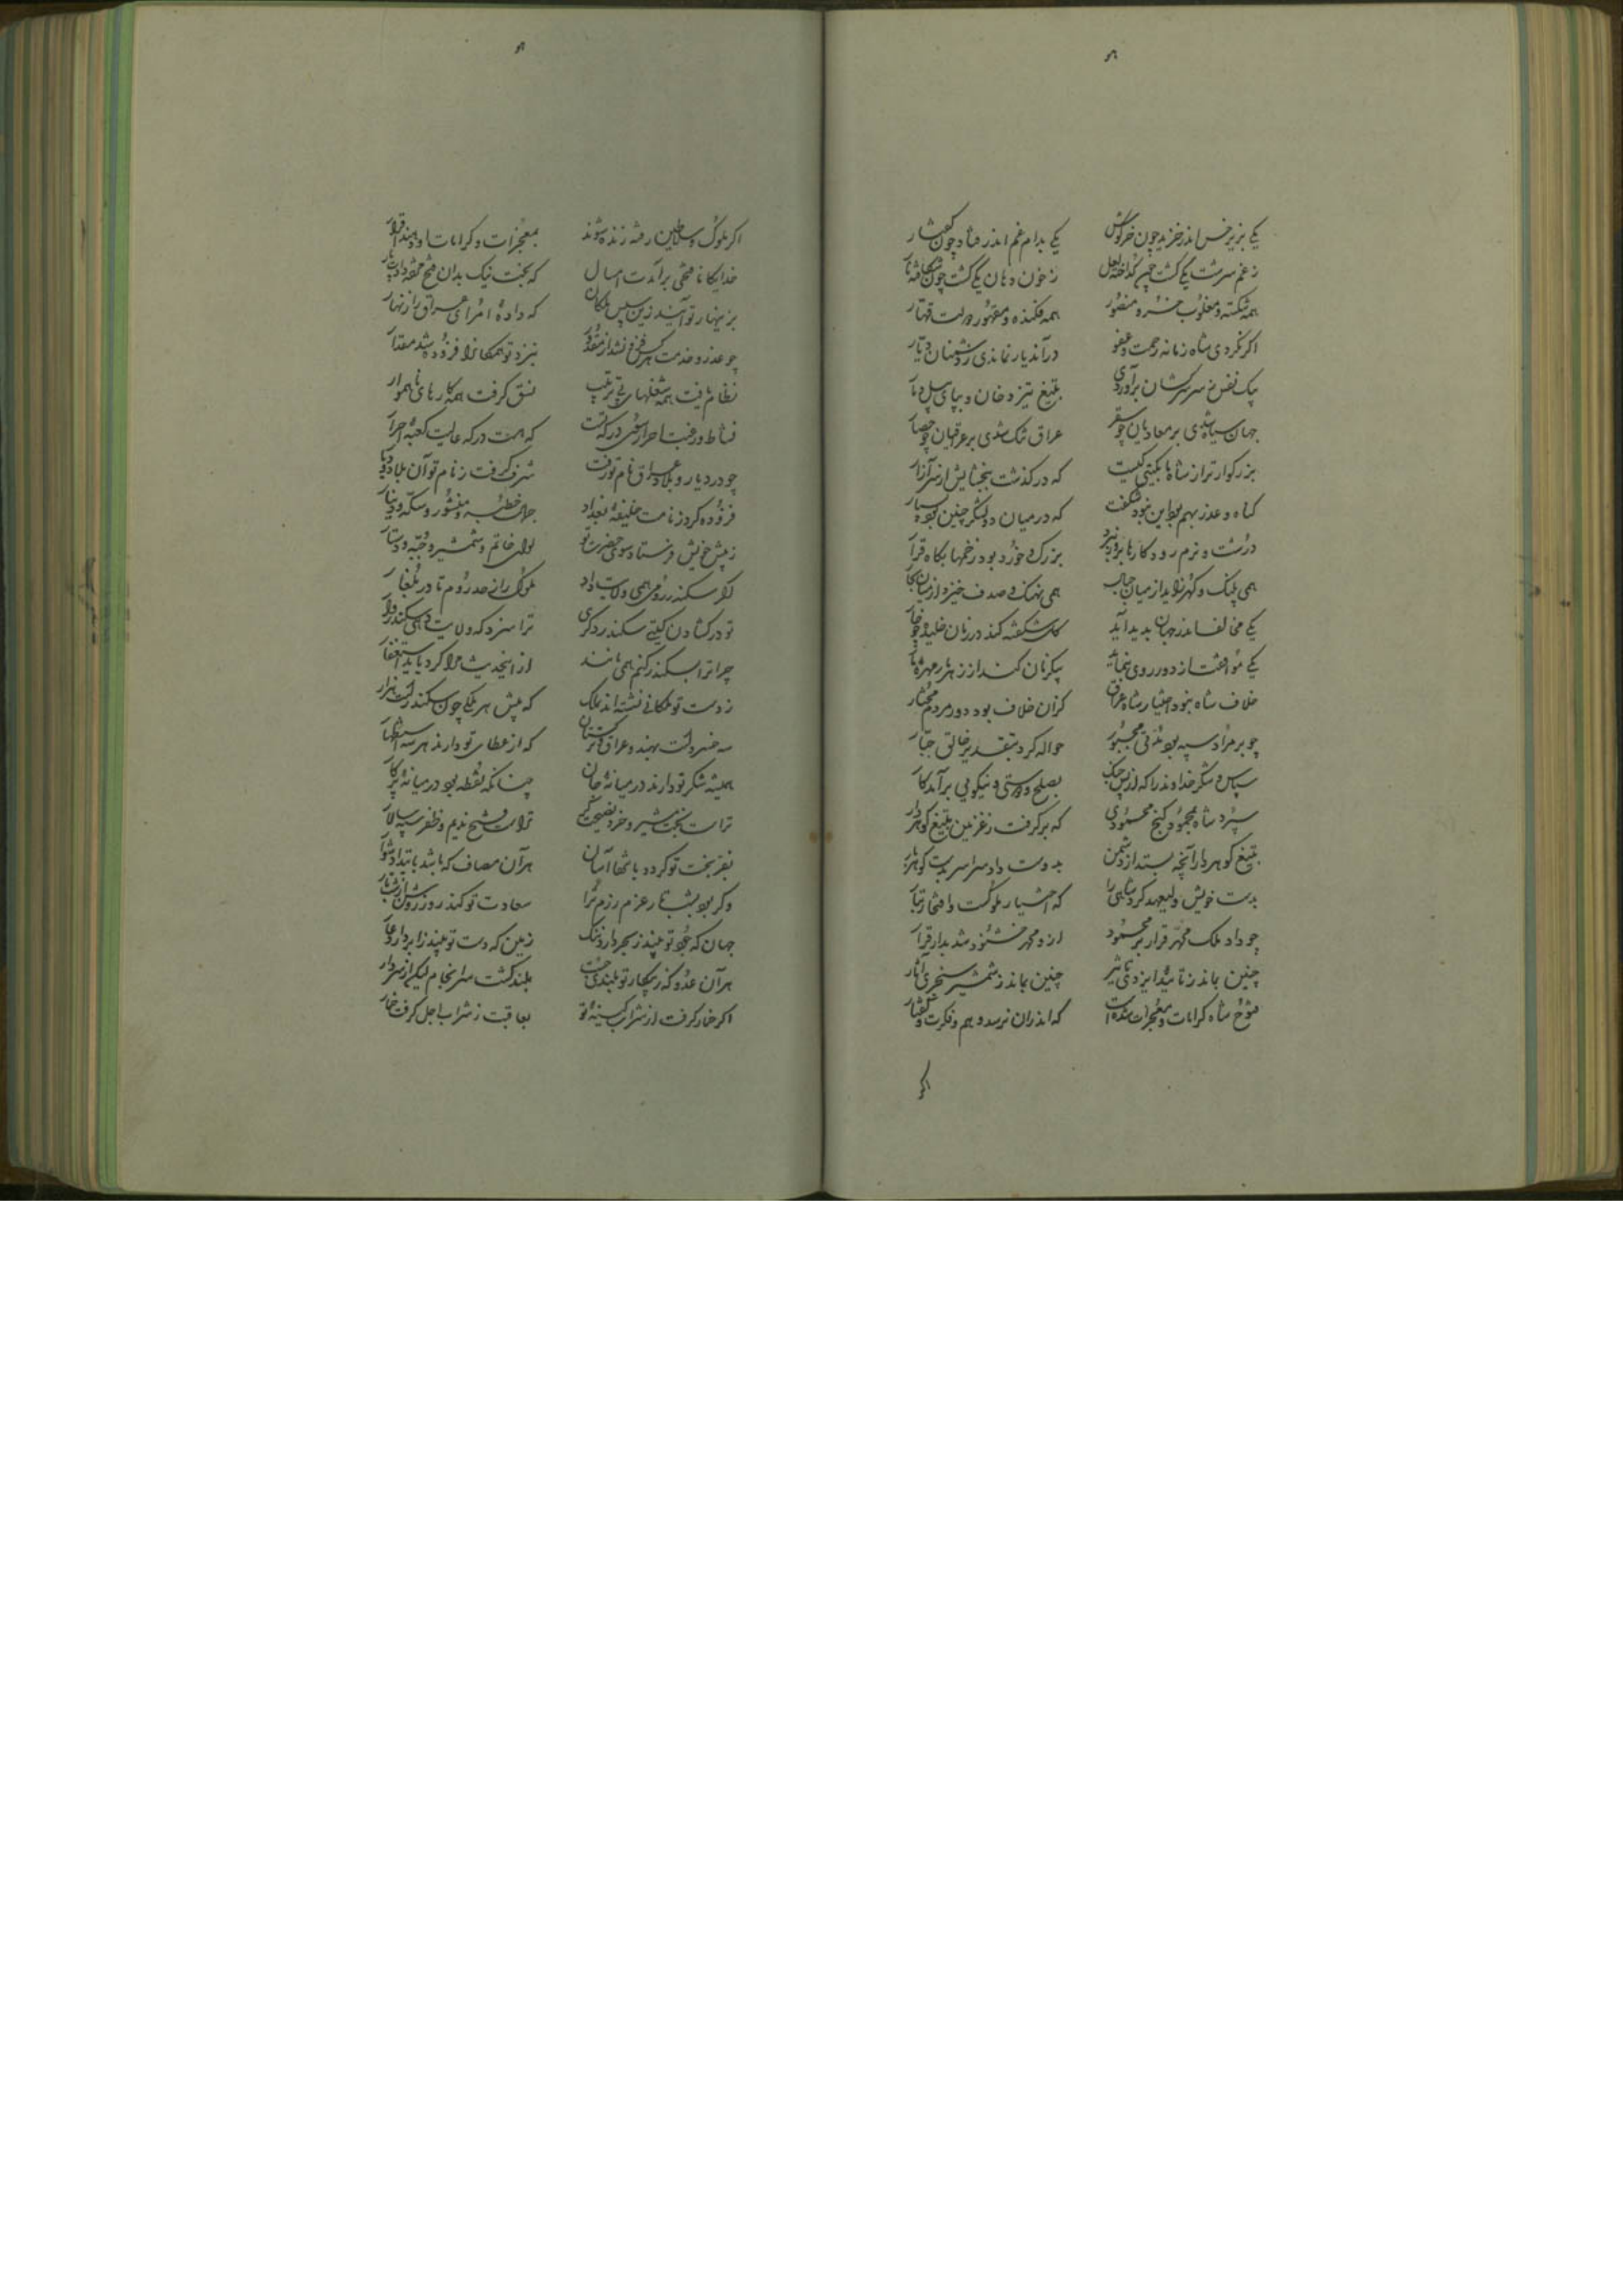 یکی بزیر خس اندر خزید چون خرگوش یکی بدام غم اندر فتاد چون کفتار
ز غم سرشت یکی کشت چون کداخته لعل ز خون دهان یکی کشت چون شکافته نار
همه شکسته و مغلوب خسرو منصور همه فکنده و مقهور دولت قهار
اکر نکردی شاه زمانه رحمت و عفو در آن دیار نماندی ز دشمنان دیار
بیک نفس سر سرکشان برآوردی بتیغ تیز دخان و بپای پیل دمار
جهان سیاه شدی بر معادیان چو سقر عراق تنک شدی بر عراقیان چو حصار
بزرکوارتر از شاه ما بکیتی کیست که درکذشت ببخشایش از سر آزار
کناه و عذر بهم بود این نبود شکفت که در میان دو لشکر چنین بود بسیار
درشت و نرم رود کارها بروز نبرد بزرک و خورد بود زخمها بکاه قرار
همی پلنک و کهر زاید از میان جبال همی نهنک و صدف خیزد از میان بحار
یکی مخالفت اندر جهان بدید آید کل شکفته کند در زمان خلیده چو خار
یکی موافقت از دور روی بنماید بیکزمان کند از زهر مار مهره مار
خلاف شاه نبود اختیار شاه عراق کزان خلاف بود دور مردم مختار
چو بر مراد سپه بود مدتی مجبور حواله کرد بتقدیر خالق جبار
سپاس و شکر خداوند را که از پس جنک بصلح و دوستی و نیکویی برآمد کار
سپرد شاه بمحمود کنج محمودی که برکرفت ز غزنین بتیغ کوهردار
بتیغ کوهردار آنچه بستد از دشمن بدوست داد سراسر بدست کوهربار
بدست خویش ولیعهد کرد شاهی را که اختیار ملوکست و افتخار تبار
چو داد ملک محمد قرار بر محمود ازو محمد خشنود شد بدار قرار
چنین نماند ز تایید ایزدی تاثیر چنین نماند ز شمشیر سنجری آثار
فتوح شاه کرامات و معجزات شدست که اندران نرسد وهم و فکرت و کفتار
اکر
اکر ملوک و سلاطین رفته زنده شوند بمعجزات و کرامات او دهند اقرار
خدایکانا فتحی برآمدت امسال که بخت نیک بدان فتح مژده داد پار
بزینهار تو آیند زین سپس ملکان که داده امرای عراق را زنهار
چو عذر و خدمت هر کس نشد از مقدور بنزد تو همکانرا فزوده شد مقدار
نظام یافت همه شغلهای بی ترتیب نسق کرفت همه کارهای ناهموار
نشاط و رغبت احرار سوی درکه تست که هست درکه عالیت کعبه احرار
چو در دیار و بلاد عراق نام تو رفت شرف کرفت ز نام تو آن بلاد و دیار
فزوده کرد ز نامت خلیفه بغداد جمال خطبه و منشور و سکه و دینار
ز پیش خویش فرستاد سوی حضرت تو لوای خاتم و شمشیر و جبه و دستار
اکر سکندر رومی همی ولایت داد ملوک را ز حد روم تا در بلغار
تو در کشادن کیتی سکندر دکری ترا سزد که ولایت دهی سکندروار
چرا ترا بسکندر کنم همی مانند از اینحدیث مرا کرد باید استغفار
ز دست تو ملکانی نشسته اند بملک که پیش هر ملکی چون سکندرست هزار
سه خسروست بهند و عراق و ترکستان که از عطای تو دارند هر سه استظهار
همیشه شکر تو دارند در میانه جان چنانکه نقطه بود در میانه پرکار
تراست بخت مشیر و خرد نصیحت کر تراست فتح ندیم و ظفر سپه سالار
بفر بخت تو کردد باتفاق آسان هر آن مصاف که باشد بابتدا دشوار
و کر بود بشب تار عزم رزم ترا سعادت تو کند روز روشن از شب تار
جهان که جود تو بیند ز بحر دارد ننک زمین که دست تو بیند ز ابر دارد عار
هر آن عدو که ز پیکار تو بلندی جست بلند کشت سرانجام لیکن از سر دار
اکر خمار کرفت از شراب کینه تو بعاقبت ز شراب اجل کرفت خمار